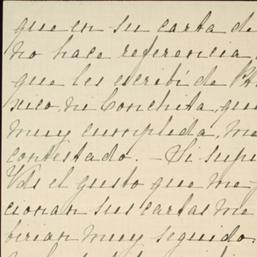 que en su carta de
no hace referencia
que les escribí de
sico, ni Conchita, que
muy cumplida, me
contestado. - Si supie
Vds el gusto que me
cionan sus cartas me
birian muy seguido